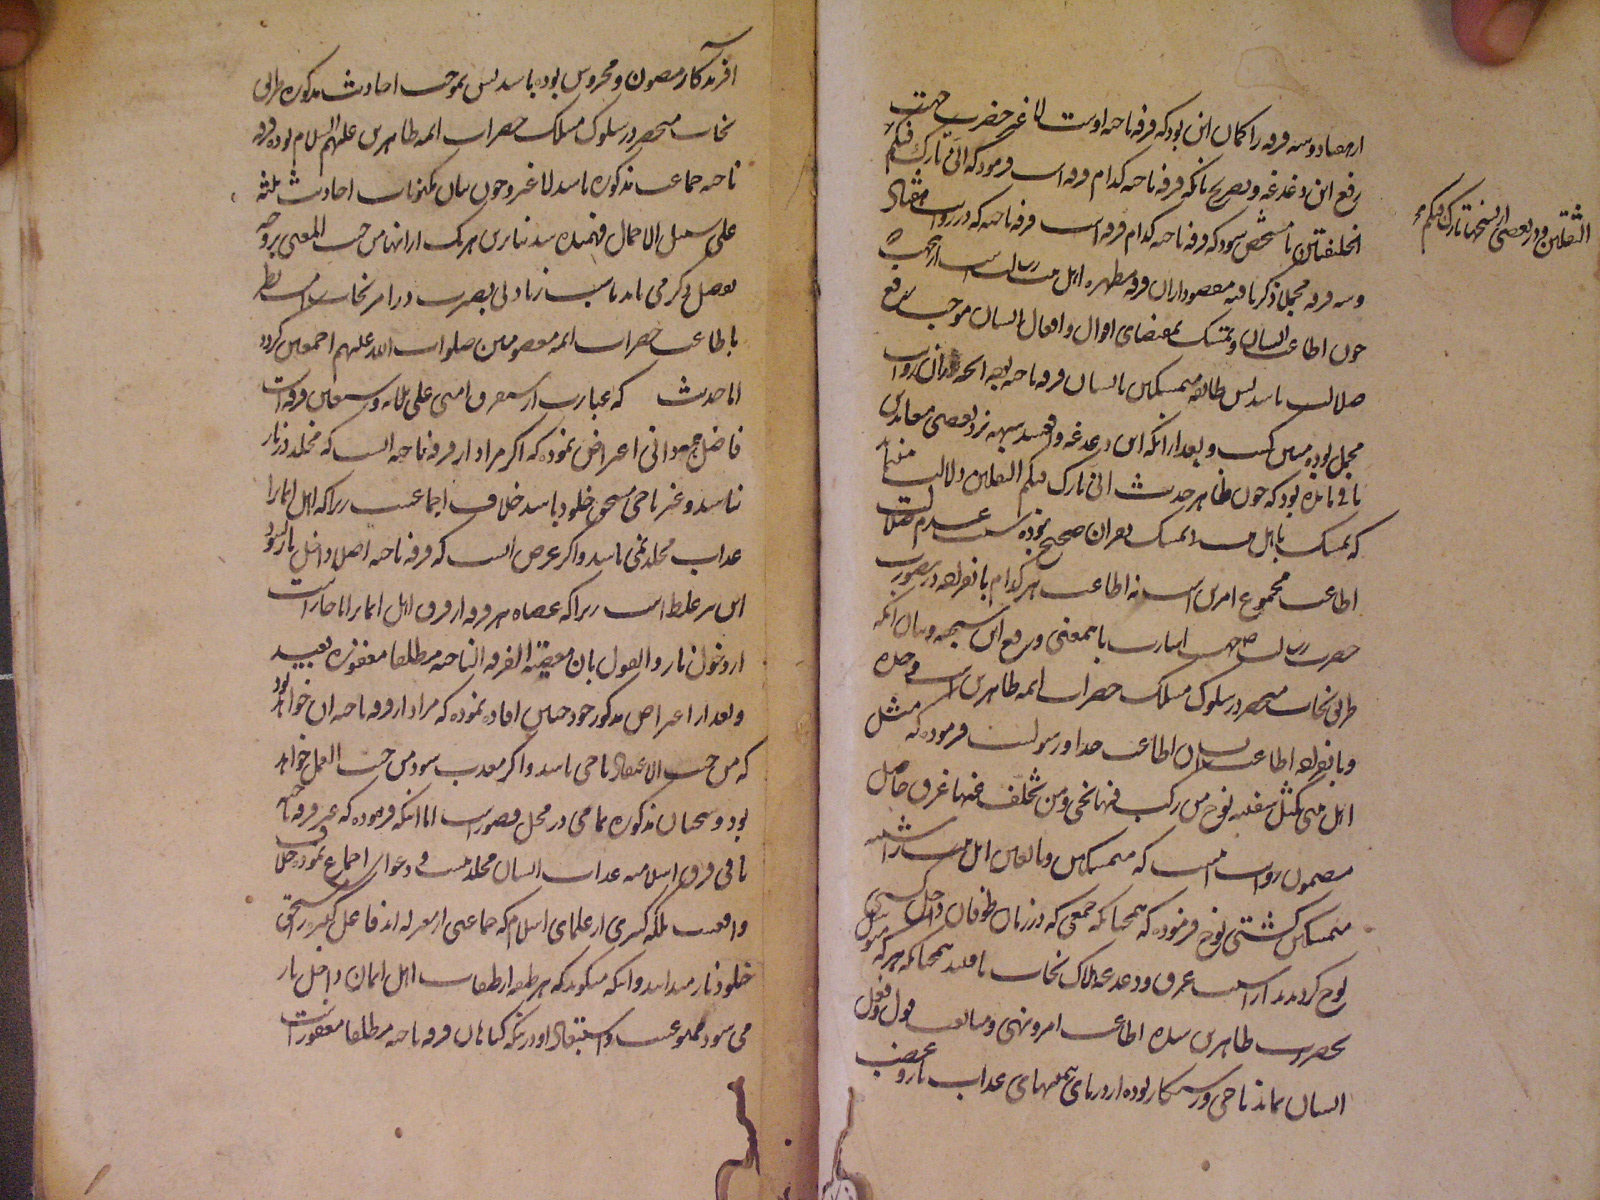 از هفتاد و سه فرقه را کمان این بود که فرقه ناجیه اوست لا غیر حضرت جهت
رفع این دغدغه و تصریح بانکه فرقه ناجیه کدام فرقه است فرمود که انی تارک فیکم
الثقلین و در بعضی از نسخها تارک فیکم
الخلیفتین تا مشخص شود که فرقه ناجیه کدام فرقه است فرقه ناجیه که در روایت
و سه فرقه مجملا ذکر یافته مقصود از آن فرقه مطهره اهل بیت رسالت است از جهت
چون اطاعت ایشان و تمسک بمقتضای اقوال و افعال ایشان موجب رفع
ضلالت باشد پس طایفه متمسکین بایشان فرقه ناجیه بوده آنچه در آن روایت
مجمل بوده مبین کشت و بعد از آنکه این دغدغه شبهه نزد بعضی معاندین
باقی مانده بود که چون ظاهر حدیث انی تارک فیکم الثقلین دلالت
که تمسک باهل بیت تمسک بقران صحیح نبوده عدم ضلالت
اطاعت مجموع امرین است نه اطاعت هر کدام بانفراده در
حضرت رسالت جهت اشارت باین معنی و رفع این شبهه و بیان آنکه
طریق نجات منحصر در سلوک مسلک حضرات ائمه طاهرین است وحده
و بانفراده اطاعت ایشان اطاعت خدا و رسولست فرموده که مثل
اهل بیتی کمثل سفینه نوح من رکب فیها نجی و من تخلف عنها غرق حاصل
مضمون روایت اینست که متمسکین و تابعین اهل بیت را تشبیه
متمسکین کشتی نوح فرموده که همچنانکه جمعی که در زمان طوفان داخل کشتی
نوح کردیدند از آسیب غرق و دغدغه هلاک نجات یافتند همچنانکه هر که
بحضرت طاهرین شده اطاعت امر و نهی و متابعت قول و فعل
ایشان نماید ناجی و رستکار بوده از دریای عذاب نار و غضب
آفریدکار مصون و محروس بوده باشد پس بموجب احادیث مذکوره طریق
نجات منحصر در سلوک مسلک حضرات ائمه طاهرین علیهم السلام بوده فرقه
ناجیه جماعت مذکوره باشد لا غیر و چون بیان مکنونات احادیث ثلثه
علی سبیل الاجمال فهمیده شد بنابرین هر یک از اینها من حیث المعنی بر وجه
تفصیل ذکر می یابد تا سبب زیادتی بصیرت در امر نجات
باطاعت حضرات ائمه معصومین صلوات الله علیهم اجمعین کردد
اما حدیث که عبارت از ستفرق امتی علی ثلاثه و سبعین فرقه است
فاضل دوانی اعتراض نموده که اکر مراد از فرقه ناجیه آنست که مخلد در نار
نباشد و غیر ناجی مستحق خلود باشد خلاف اجماعست زیرا که اهل ایمانرا
عذاب مخلد نمی باشد و اکر غرض آنست که فرقه ناجیه اصلا داخل نار نشود
این نیز غلط است زیرا که عصاه هر فرقه از فرق اهل ایمانرا ناچار است
از دخول نار و القول بان معصیه الفرقه الناجیه مطلقا مغفوره بعید
و بعد از اعتراض مذکور خود چنین افاده نموده که مراد از فرقه ناجیه آن خواهد بود
که من حیث الاعتقاد ناجی باشد و اکر معذب شود من حیث العمل خواهد
بود و سخنان مذکوره تمامی در محل قصور است اما اینکه فرموده که غیر فرقه ناجیه
باقی فرق اسلامیه عذاب ایشان مخلد نیست و دعوای اجماع نموده خلاف
واقعست بلکه کثیری از علمای اسلام که جماعتی از معتزله اند فاعل کبیره را مستحق
خلود نار میدانند و آنکه میکوید که هر طبقه از طبقات اهل ایمان داخل نار
می شود ممنوعست و استبعاد او در آنکه کناهان فرقه ناجیه مطلقا مغفور است